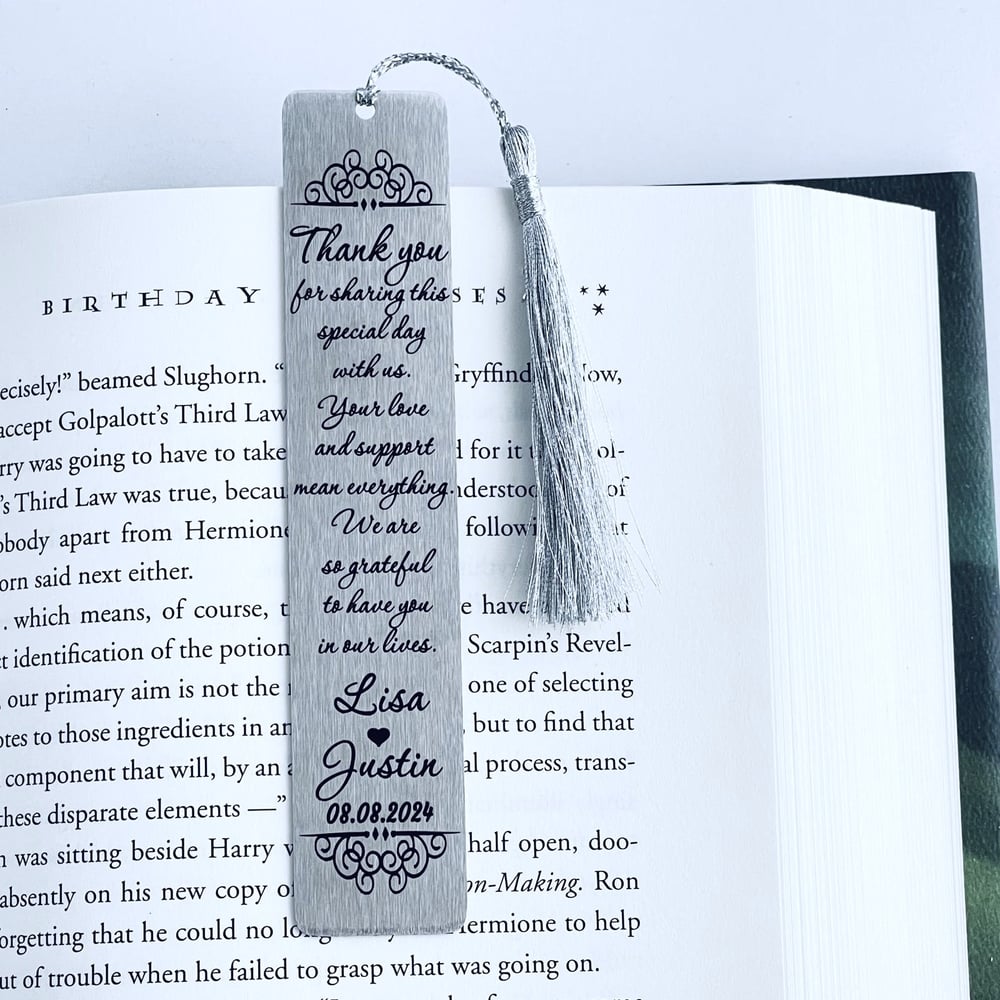 Thank you
for sharing this
special day
with us.
Your love
and support
mean everything.
We are
so grateful
to have you
in our lives.
Lisa
Justin
08.08.2024
BIRTHDAY SES
ecisely!” beamed Slughorn. “ Gryffind ow,
accept Golpalott’s Third Law
rry was going to have to take d for it ol-
’s Third Law was true, becau nderstoo of
obody apart from Hermione followi t
orn said next either.
. which means, of course, t e have d
ct identification of the potion Scarpin’s Revel-
, our primary aim is not the one of selecting
otes to those ingredients in an , but to find that
component that will, by an a al process, trans-
these disparate elements —”
n was sitting beside Harry w half open, doo-
absently on his new copy o on-Making. Ron
orgetting that he could no long Hermione to help
ut of trouble when he failed to grasp what was going on.